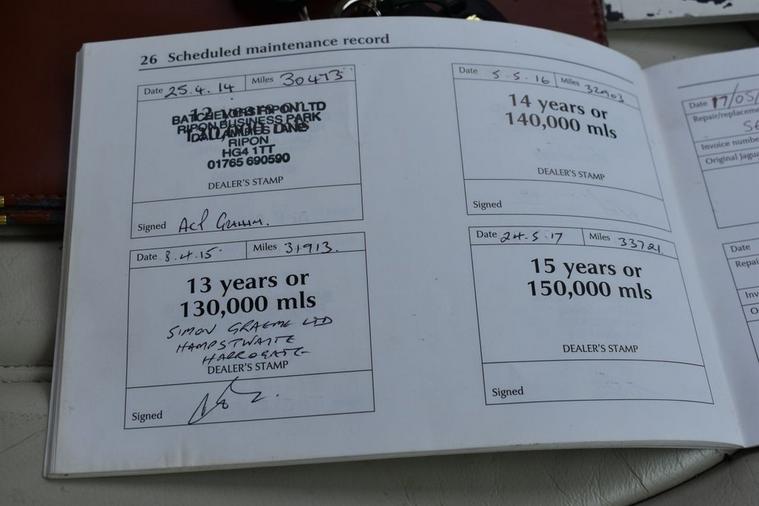 26 Scheduled maintenance record
Date 25.4.14 Miles 30473
12 years or
BATCHELORS RIPON LTD
RIPON BUSINESS PARK
DALLAMIRES LANE
RIPON
HG4 1TT
01765 690590
DEALER'S STAMP
Signed
Date 8.4.15. Miles 31913.
13 years or
130,000 mls
SIMON GRAEME LTD
HAMPSTWAITE
HARROGATE
DEALER'S STAMP
Signed
Date 5.5.16 Miles 32903
14 years or
140,000 mls
DEALER'S STAMP
Signed
Date 24.5.17 Miles 33721
15 years or
150,000 mls
DEALER'S STAMP
Signed
Date 17/05/
Repair/replaceme
Invoice numbe
Original Jagua
Date
Repai
Inv
O